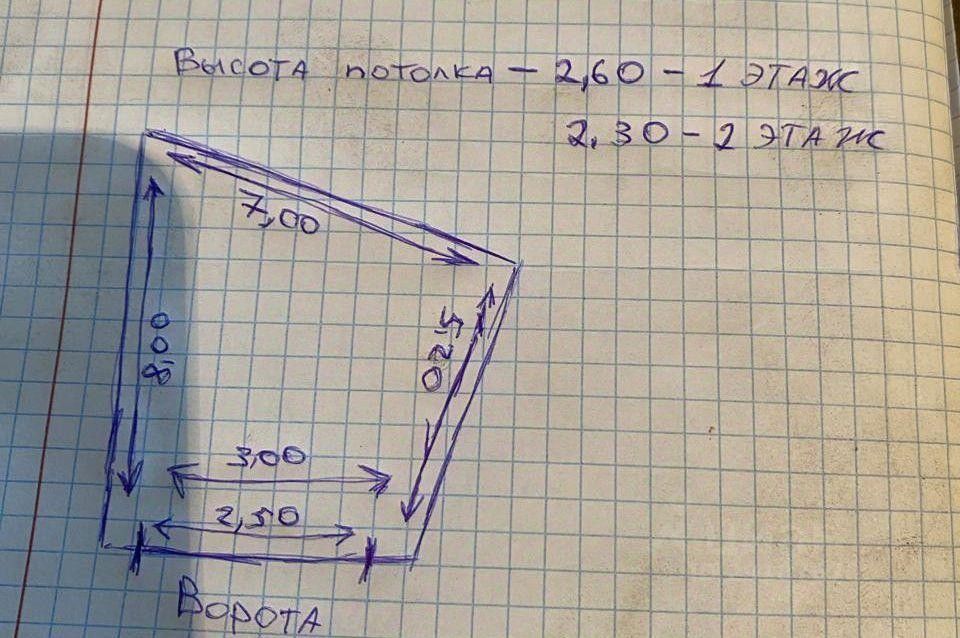 Высота потолка - 2,60 - 1 этаж
2,30 - 2 этаж
7,00
8,00
5,20
3,00
2,50
Ворота